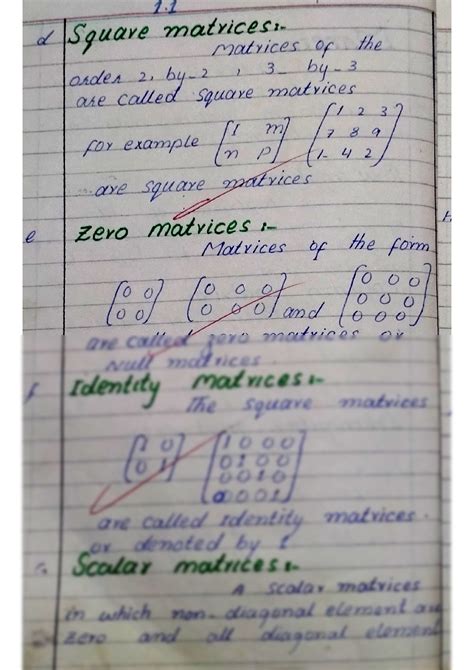 1.1
d Square matrices:-
Matrices of the
order 2, by-2 , 3- by-3
are called square matrices
for example [l m] [1 2 3]
[n p] 7 8 9
1- 4 2
are square matrices
e Zero matrices :-
Matrices of the form
[0 0] [0 0 0] and [0 0 0]
[0 0] [0 0 0] 0 0 0
0 0 0
are called zero matrices or
Null matrices
f Identity matrices:-
The square matrices
[1 0] [1 0 0 0]
[0 1] 0 1 0 0
0 0 1 0
0 0 0 1
are called identity matrices.
or denoted by I
Scalar matrices:-
A scalar matrices
in which non-diagonal element are
zero and all diagonal element